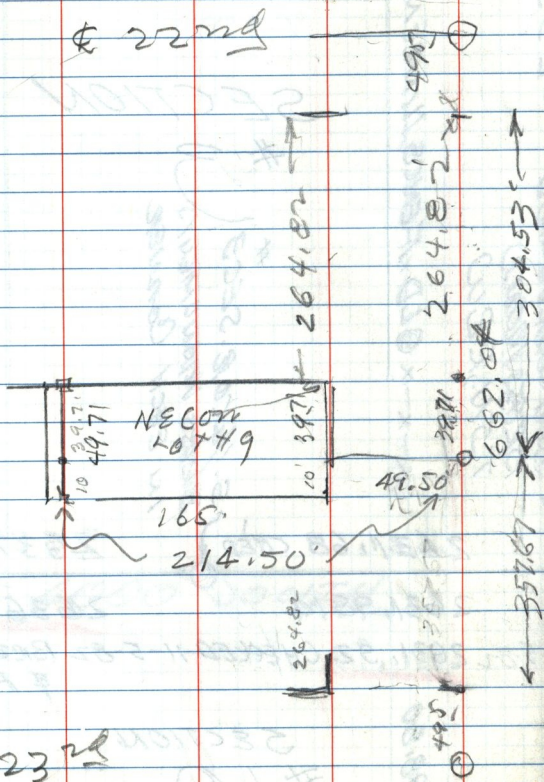 ℄ 22nd
49.5
264.82
264.82
304.53'
39.71
49.71
10
10'
39.71
39.71
662.0
49.50
165.
214.50
264.82
357.67
49.5
23rd